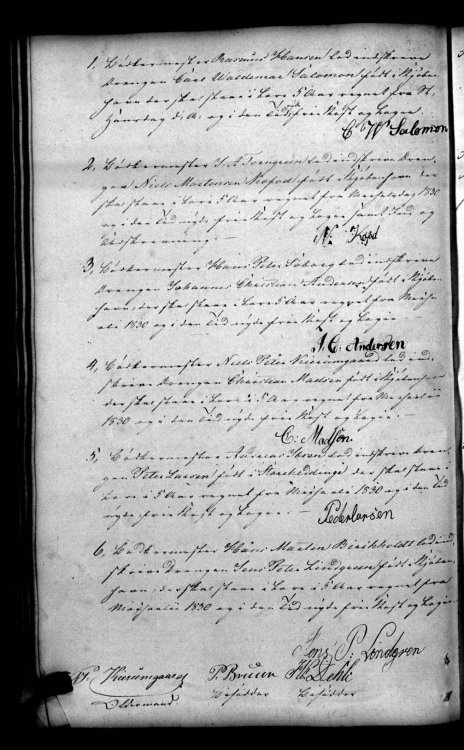 1, Bödkermester Rasmus Hansen lod indskrive
Drengen Carl Waldemar Salomon født i Kjöben-
havn der skal staae i Lære 5 Aar regnet fra St.
Hansdag d: A: og i den Tid frie Kost og Logie.
C W Salomon
2, Bödkermester lod indskrive Dren-
gen Niels Mortensen født i Kjöbenhavn der
skal staae i Lære 5 Aar regnet fra Michaelidag 1830
og i den Tid nyde frie Kost og Logie samt Ind og
Udskrivning. —
3, Bödkermester Hans Peter Soborg lod indskrive
Drengen Johannes Christian Andersen født i Kjöben-
havn, der skal staae i Lære 5 Aar regnet fra Micha-
eli 1830 og i den Tid nyde frie Kost og Logie. —
J. C. Andersen
4, Bödkermester Niels Peter Kierumgaard lod ind-
skrive Drengen Christian Madsen født i Kjöbenhavn
der skal staae i Lære i 5 Aar regnet fra Michaeli
1830 og i den Tid nyde frie Kost og Logie. —
C: Madsen.
5, Bödkermester Andreas lod indskrive Dren-
gen Peter Larsen født i Storeheddinge der skal staae i
Lære i 5 Aar regnet fra Michaeli 1830 og i den Tid
nyde frie Kost og Logie. —
Peder Larsen
6, Bödkermester Hans Morten Birkholdt lod ind-
skrive Drengen Jens Peter Lindgreen født i Kjöben-
havn, der skal staae i Lære i 5 Aar regnet fra
Michaeli 1830 og i den Tid nyde frie Kost og Logie.
Jens P: Londgren
Kierumgaard P. Bruun H. Dehli
Oldermand Bisidder Bisidder